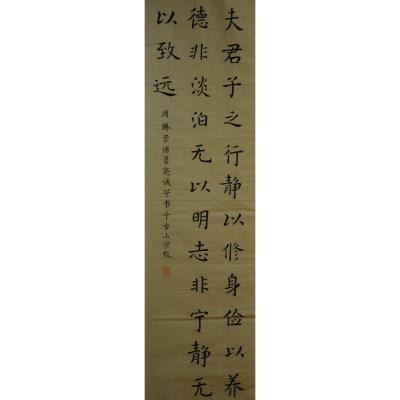 夫君子之行静以修身俭以养
德非淡泊无以明志非宁静无
以致远
周琳书诸葛亮诫子书于古山学校